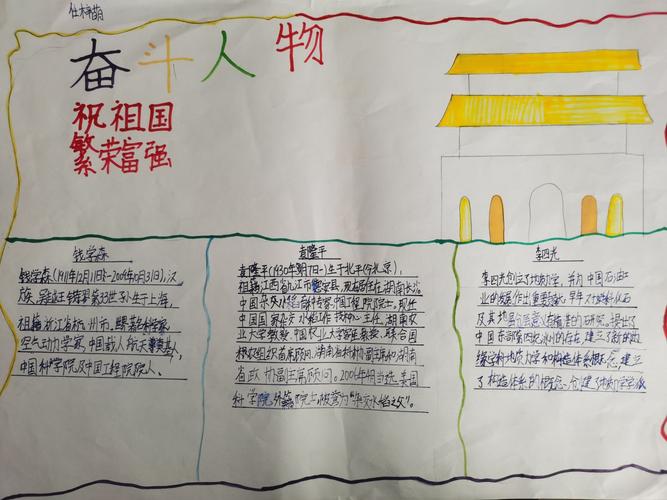 奋斗人物
祝祖国
繁荣富强
钱学森
钱学森(1911年12月11日-2009年10月31日),汉
族,吴越王钱镠第33世孙,生于上海,
祖籍浙江省杭州市。
空气动力学家,中国载人航天奠基人,
中国科学院及中国工程院院士。
袁隆平
袁隆平(1930年9月7日-)生于北平(今北京),
祖籍江西省九江市德安县,现居住在湖南长沙
中国杂交水稻育种专家,中国工程院院士。现任
中国国家杂交水稻工作技术中心主任,湖南农
业大学教授,中国农业大学客座教授,联合国
粮农组织首席顾问,湖南省科协副主席和湖南
省政协副主席顾问。2006年4月当选美国
科学院外籍院士,被誉为“杂交水稻之父”。
李四光
李四光创立了地质力学,并为中国石油工
业的发展作出重要贡献,早年
中国东部第四纪冰川的存在,建立了新的边
缘学科地质力学和构造体系概念,建立
了构造体系的概念,创建了地质力学学派